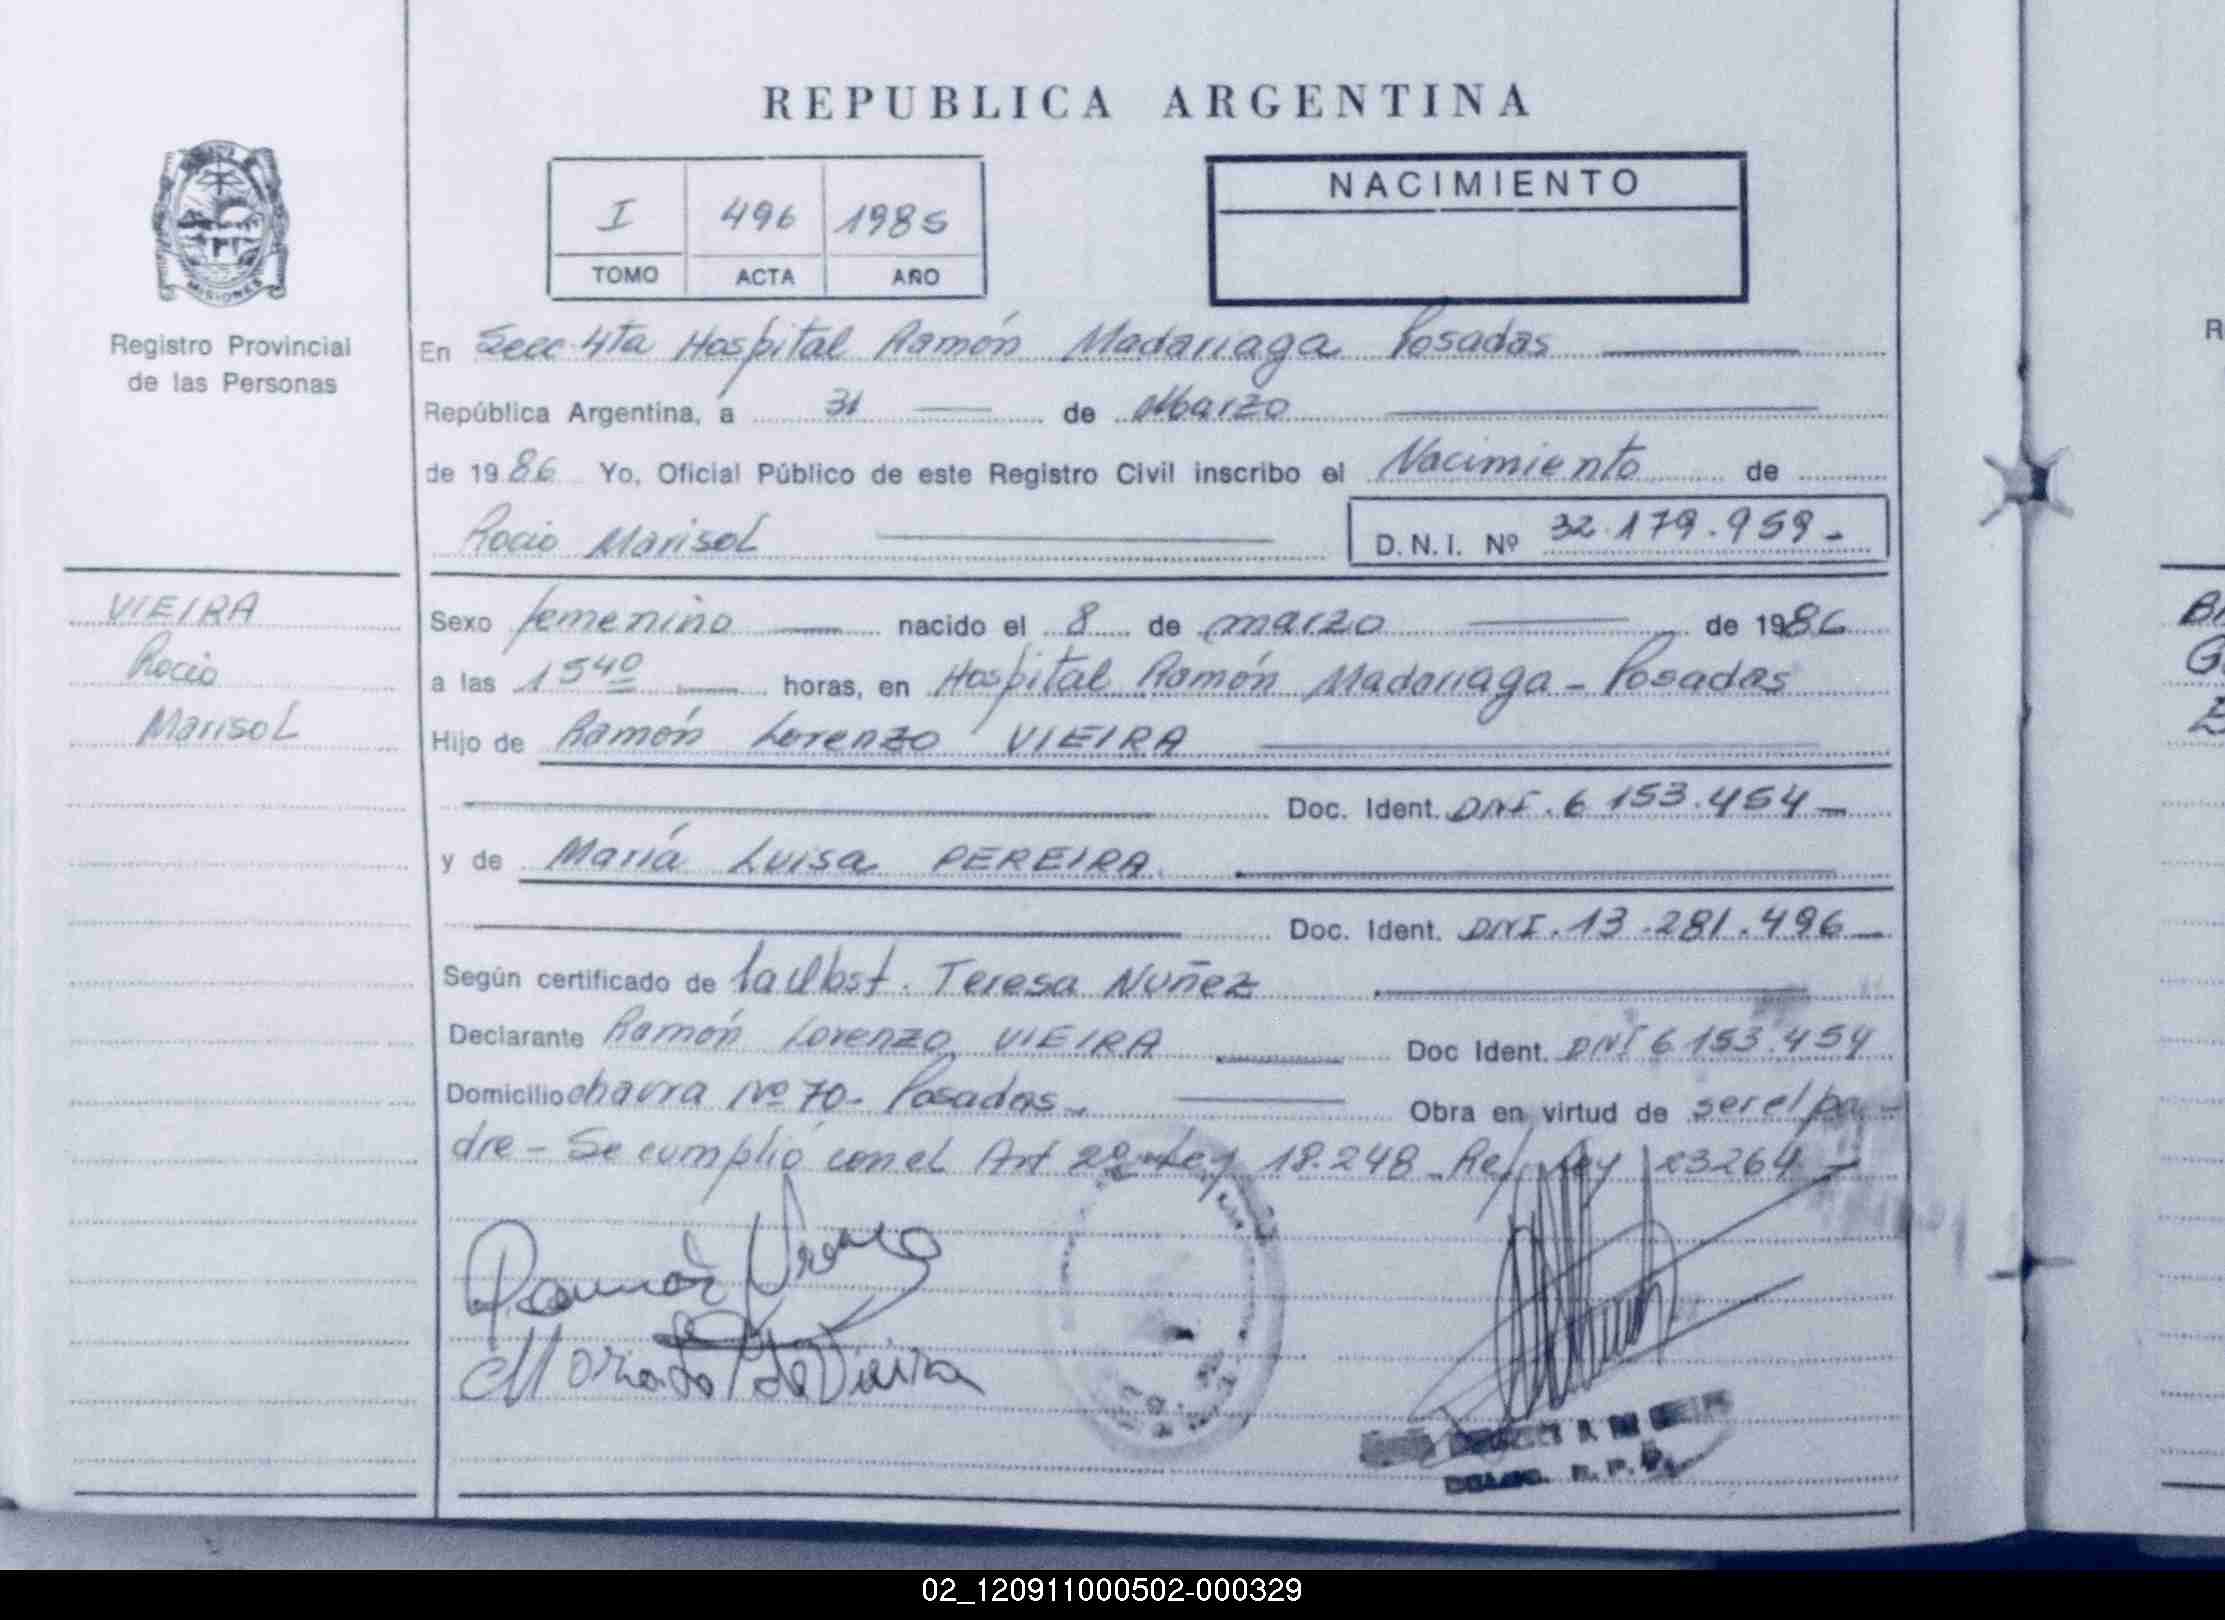 REPUBLICA ARGENTINA
MISIONES
Registro Provincial
de las Personas
I 496 1985
TOMO ACTA AÑO
NACIMIENTO
En Secc 4ta Hospital Ramón Madariaga Posadas
República Argentina, a 31 de Marzo
de 1986 Yo, Oficial Público de este Registro Civil inscribo el Nacimiento de
Rocio Marisol D.N.I. Nº 32.179.959-
VIEIRA
Rocio
Marisol
Sexo femenino nacido el 8 de marzo de 1986
a las 1540 horas, en Hospital Ramón Madariaga - Posadas
Hijo de Ramón Lorenzo VIEIRA
Doc. Ident. DNI. 6 153.454
y de María Luisa PEREIRA
Doc. Ident. DNI. 13.281.496
Según certificado de la Obst. Teresa Nuñez
Declarante Ramón Lorenzo VIEIRA Doc Ident. DNI 6 153.454
Domicilio chacra Nº 70- Posadas- Obra en virtud de ser el pa-
dre - Se cumplió con el Art 2º Ley 18.248 Ref Ley 23264
Ramón
02_120911000502-000329